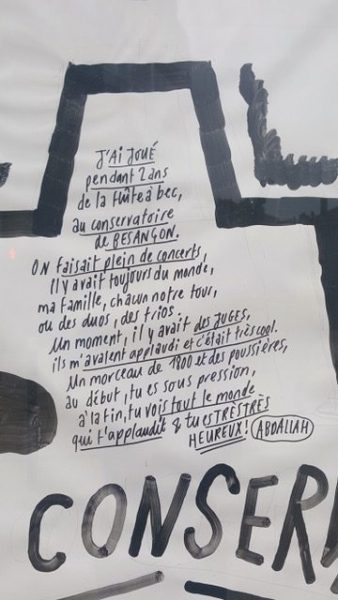 J'AI JOUÉ
pendant 2 ans
de la flûte à bec,
au conservatoire
de BESANÇON.
ON faisait plein de concerts,
Il y avait toujours du monde,
ma famille, chacun notre tour,
ou des duos, des trios.
Un moment, il y avait des JUGES,
ils m'avaient applaudi et c'était très cool.
Un morceau de 1800 et des poussières,
au début, tu es sous pression,
à la fin, tu vois tout le monde
qui t'applaudit & tu es TRÈS TRÈS
HEUREUX! ABDALLAH
CONSER